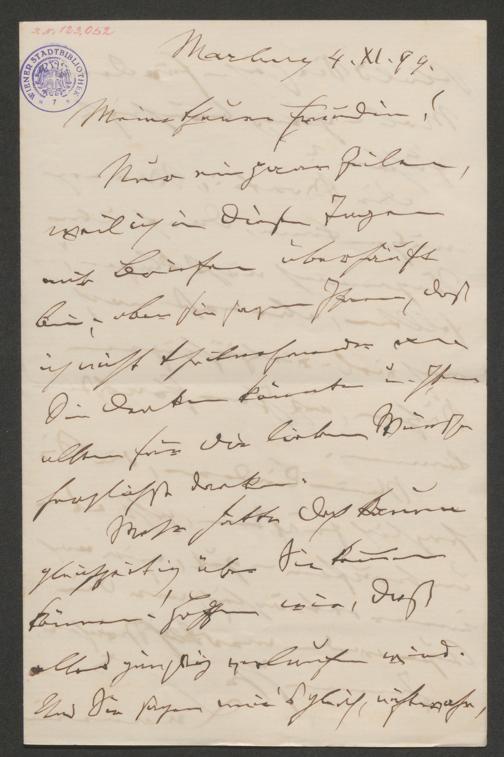 I.N. 123,052
WIENER STADTBIBLIOTHEK
Marburg 4. XI. 99.
Meine theure Freundin!
Nur ein paar Zeilen,
weil ich in diesen Tagen
mit Briefen überhäuft
bin; aber sie sagen Ihnen, daß
ich nicht theilnehmender an
Sie denken könnte u. Ihnen
allen für die lieben Wünsche
herzlichst danke.
gleichzeitig über Sie kommen
können! Hoffen wir, daß
alles günstig verlaufen wird.
Und Sie sagen mir's gleich, nicht wahr,